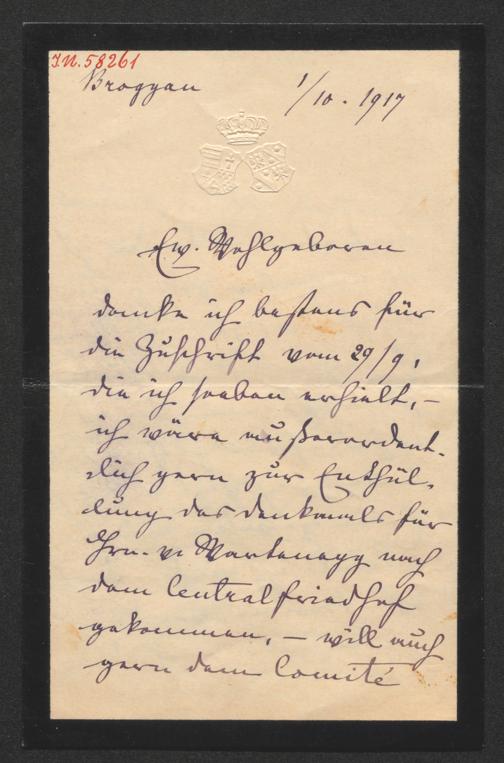 IN. 58261
Broggyan 1/10. 1917
Ew. Wohlgeboren
danke ich bestens für
die Zuschrift vom 29/9,
die ich soeben erhielt, –
ich wäre außerordent-
lich gern zur Enthül-
lung des Denkmals für
Hrn. v. Wartenegg nach
dem Centralfriedhof
gekommen, – will auch
gern dem Comité